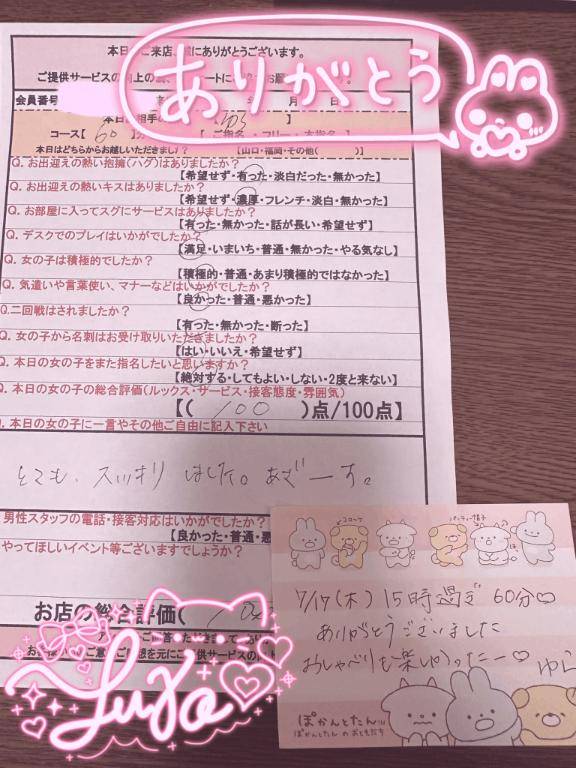 本日
ご来店
にありがとうございます。
ご提供サービスの
向上の為
ありがとう
会員番号
年 月 日
コース【 60 】分
ご指名・フリー・本指名
本日はどちらからお越しいただきましたか？ 【山口・福岡・その他( )】
Q. お出迎えの熱い抱擁(ハグ)はありましたか？
【希望せず・有った・淡白だった・無かった】
Q. お出迎えの熱いキスはありましたか？
【希望せず・濃厚・フレンチ・淡白・無かった】
Q. お部屋に入ってスグにサービスはありましたか？
【有った・無かった・話が長い・希望せず】
Q. デスクでのプレイはいかがでしたか？
【満足・いまいち・普通・無かった・やる気なし】
Q. 女の子は積極的でしたか？
【積極的・普通・あまり積極的ではなかった】
Q. 気遣いや言葉使い、マナーなどはいかがでしたか？
【良かった・普通・悪かった】
Q.二回戦はされましたか？
【有った・無かった・断った】
Q. 女の子から名刺はお受け取りいただきましたか？
【はい・いいえ・希望せず】
Q. 本日の女の子をまた指名したいと思いますか？
【絶対する・してもよい・しない・2度と来ない】
Q. 本日の女の子の総合評価(ルックス・サービス・接客態度・雰囲気)
【( 100 )点/100点】
Q. 本日の女の子に一言やその他ご自由に記入下さい
とても、スッキリ しました。あざーす。
男性スタッフの電話・接客対応はいかがでしたか？
【良かった・普通・悪
やってほしいイベント等ございますでしょうか？
お店の総合評価(
7/17(木) 15時過ぎ 60分♡
ありがとうございました
おしゃべりも楽しかったー♡ ゆら
ぽかんとたん
ぽかんとたん の おともだち
Yura